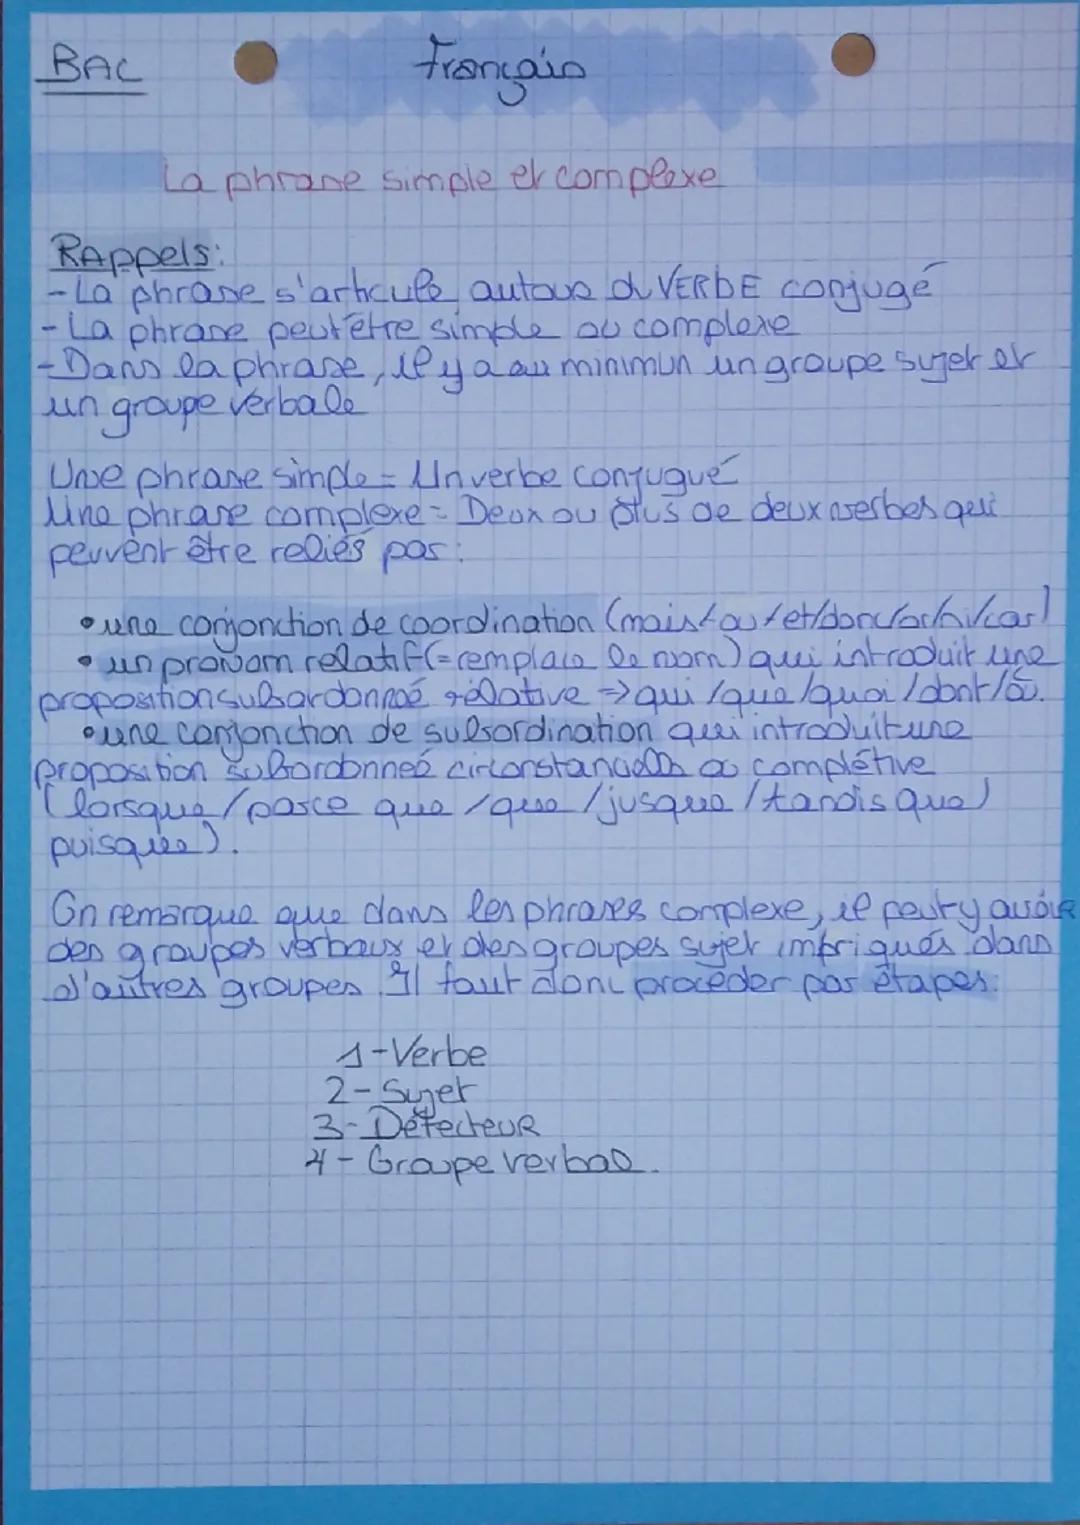 BAC
Français
La phrase simple et complexe
RAppels:
- La phrase s'articule autour du VERBE conjugé
- La phrase peut être simple ou complexe
- Dans la phrase, il y a au minimun un groupe sujet et
un groupe verbale
Une phrase simple = Un verbe conjugué
Une phrase complexe = Deux ou plus de deux verbes qui
peuvent être reliés par :
• une conjonction de coordination (mais/ou/et/donc/or/ni/car)
• un pronom relatif (= remplace le nom) qui introduit une
proposition subordonnée relative => qui/que/quoi/dont/où.
• une conjonction de subordination qui introduit une
proposition subordonneé circonstancielle ou complétive
(lorsque/parce que/que/jusque/tandis que/
puisque).
On remarque que dans les phrases complexe, il peut y avoir
des groupes verbaux et des groupes sujet imbriqués dans
d'autres groupes. Il faut donc procéder par étapes:
1-Verbe
2- Sujet
3- Détecteur
4 - Groupe verbal.